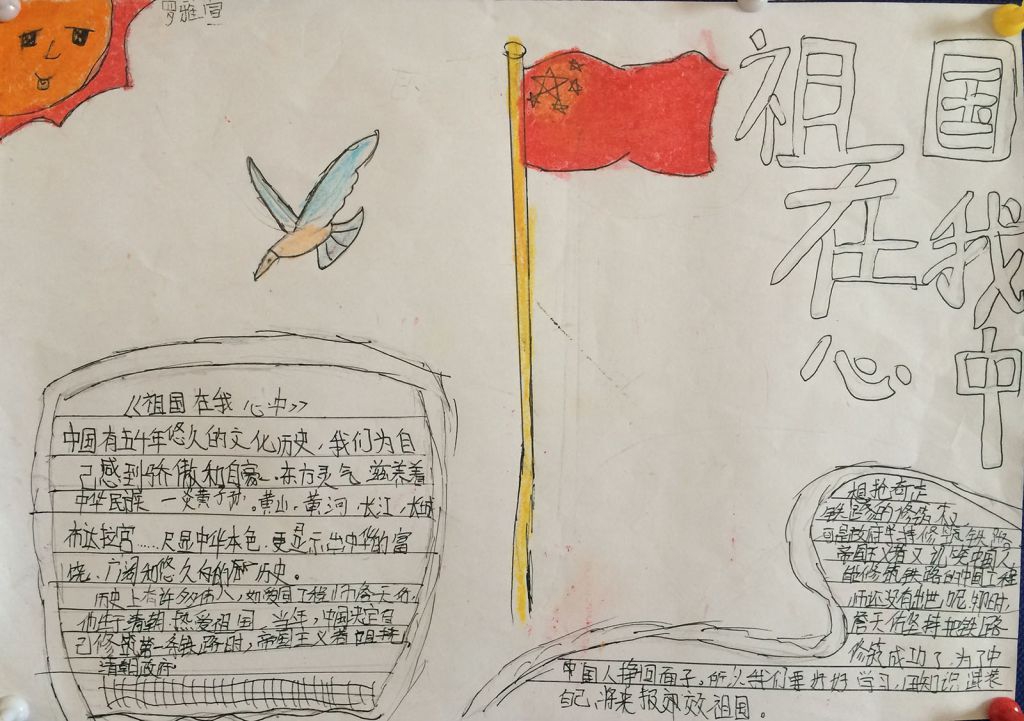 罗雅宣
祖国
在我
心中
《祖国在我心中》
中国有五千年悠久的文化历史，我们为自
己感到骄傲和自豪。东方灵气滋养着
中华民族 一炎黄子孙。黄山，黄河，长江，长城
布达拉宫……尽显中华本色，更显示出中华的富
饶，广阔和悠久的历史。
历史上有许多伟人，如爱国工程师詹天佑，
他生于清朝，热爱祖国，当年，中国决定自
己修筑第一条铁路时，帝国主义者阻挠
清朝政府
想抢夺走
铁路的修筑权
可是政府坚持修筑铁路
帝国主义者又讥笑中国人
能修筑铁路的中国工程
师还没有出世呢。那时，
詹天佑坚持把铁路
修筑成功了，为了中
中国人挣回面子。所以我们要好好学习，用知识武装
自己，将来报效祖国。